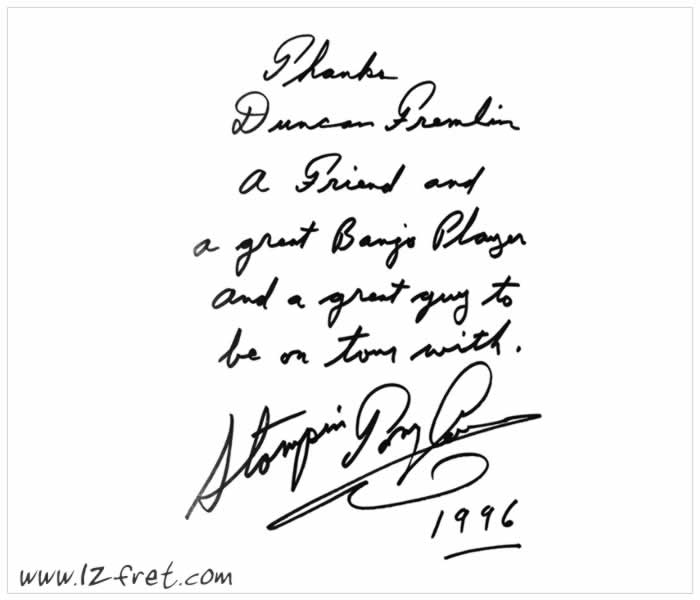 Thanks
Duncan Fremlin
A Friend and
a great Banjo Player
and a great guy to
be on tour with.
Stompin Tom Connors
1996
www.12fret.com